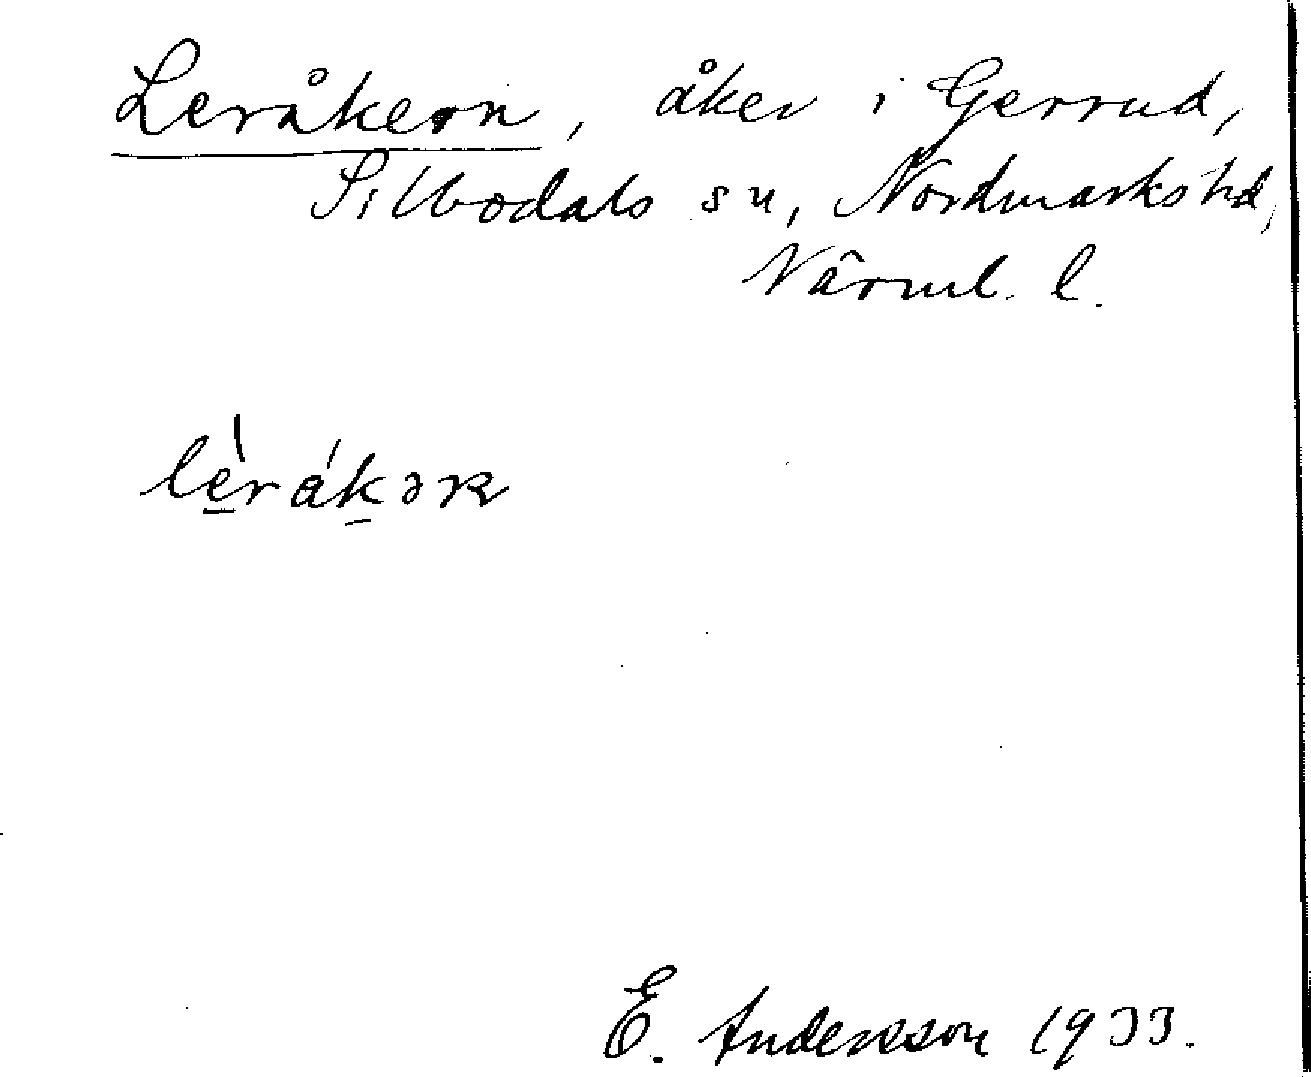 Leråkern, åker i Gerrud,
Silbodals sn, Nordmarks hd,
Värml. l.
lèrákəʀ
E. Andersson 1933.